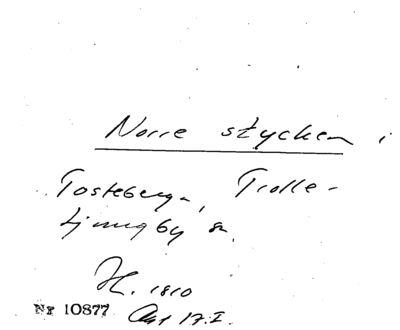 Norre stycken i
Tosteberga, Trolle-
Ljungby sn.
H. 1810
Nr 10877 Akt 17.I.